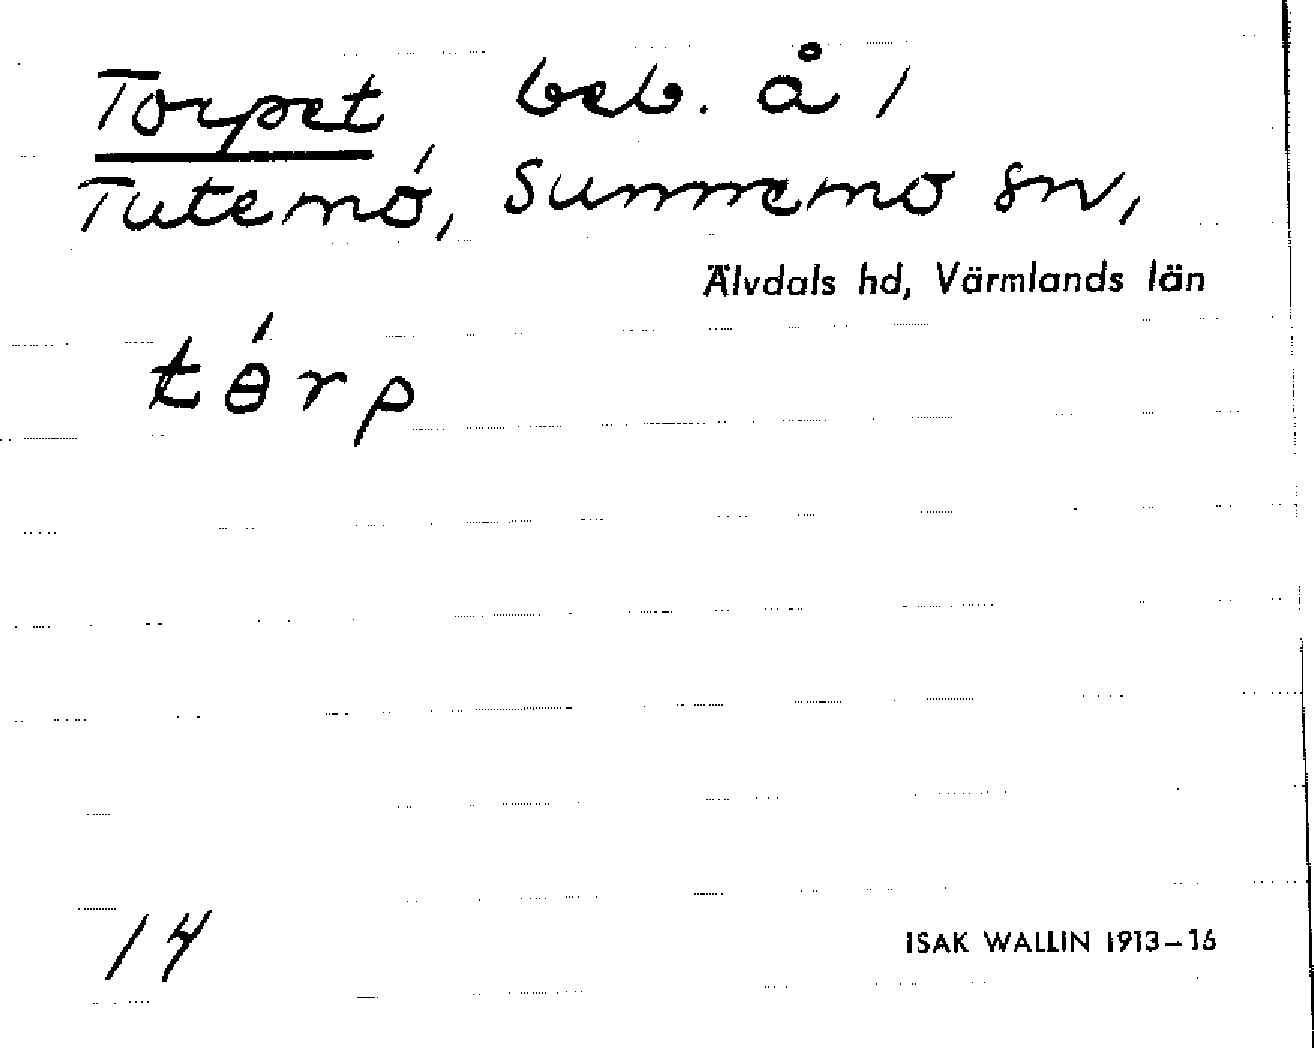 Torpet, beb. å 1
Tutemo, Sunnemo sn,
Älvdals hd, Värmlands län
tɵ́rp
14
ISAK WALLIN 1913–16